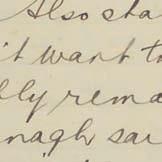 Also sta
it want to
bly rema
nagh sai